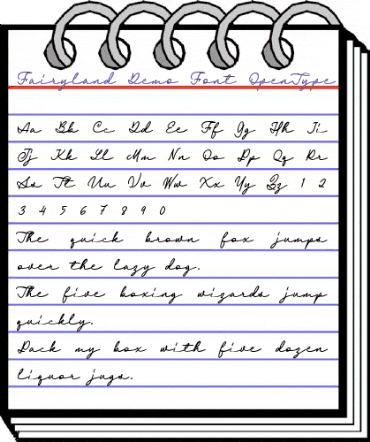 Fairyland Demo Font OpenType
Aa Bb Cc Dd Ee Ff Gg Hh Ii
Jj Kk Ll Mm Nn Oo Pp Qq Rr
Ss Tt Uu Vv Ww Xx Yy Zz 1 2
3 4 5 6 7 8 9 0
The quick brown fox jumps
over the lazy dog.
The five boxing wizards jump
quickly.
Pack my box with five dozen
liquor jugs.